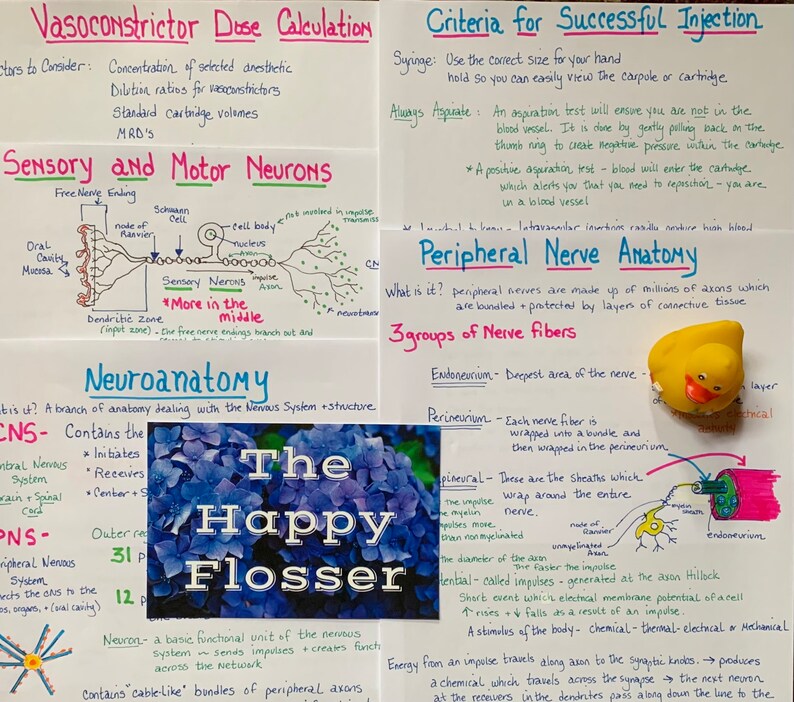 Vasoconstrictor Dose Calculation
ctors to Consider: Concentration of selected anesthetic
Dilution ratios for vasoconstrictors
Standard cartridge volumes
MRD's
Sensory and Motor Neurons
Free Nerve Ending
node of Ranvier
Schwann Cell
cell body
nucleus
Axon
not involved in impulse
Transmiss
Oral Cavity Mucosa
Sensory Nerons
impulse
Axon
CN
*More in the middle
neurotrans
Dendritic zone
(input zone) - the free nerve endings branch out and
Neuroanatomy
at is it? A branch of anatomy dealing with the Nervous System + structure
CNS- Contains the
ntral Nervous System
rain + Spinal Cord
* Initiates
* Receives
* Center + S
PNS-
Outer re
31 P
ripheral Nervous System
nects the CNS to the
os, organs, + (oral cavity)
12 P
Neuron- a basic functional unit of the nervous
system ~ sends impulses + creates funct
across the Network
Contains "cable-like" bundles of peripheral axons
The
Happy
Flosser
Criteria for Successful Injection
Syringe: Use the correct size for your hand
hold so you can easily view the carpole or cartridge
Always Aspirate: An aspiration test will ensure you are not in the
blood vessel. It is done by gently pulling back on the
thumb ring to create negative pressure within the cartridge
*A positive aspiration test - blood will enter the cartridge
which alerts you that you need to reposition - you are
in a blood vessel
Intravascular injections rapidly produce high blood
Peripheral Nerve Anatomy
What is it? peripheral nerves are made up of millions of axons which
are bundled + protected by layers of connective tissue
3 groups of Nerve fibers
Endoneurium - Deepest area of the nerve -
layer
electrical
activity
Perineurium - Each nerve fiber is
wrapped into a bundle and
then wrapped in the perineurium
pineural - These are the sheaths which
wrap around the entire
nerve.
the impulse
e myelin
pulses more
than non myelinated
node of Ranvier
unmyelinated Axon
myelin sheath
endoneurium
the diameter of the axon
The faster the impulse
tential - called impulses - generated at the axon Hillock
Short event which electrical membrane potential of a cell
↑ rises + ↓ falls as a result of an impulse.
A stimulus of the body - chemical - thermal - electrical or Mechanical
Energy from an impulse travels along axon to the synaptic knobs. → produces
a chemical which travels across the synapse → the next neuron
at the receivers in the dendrites pass along down the line to the